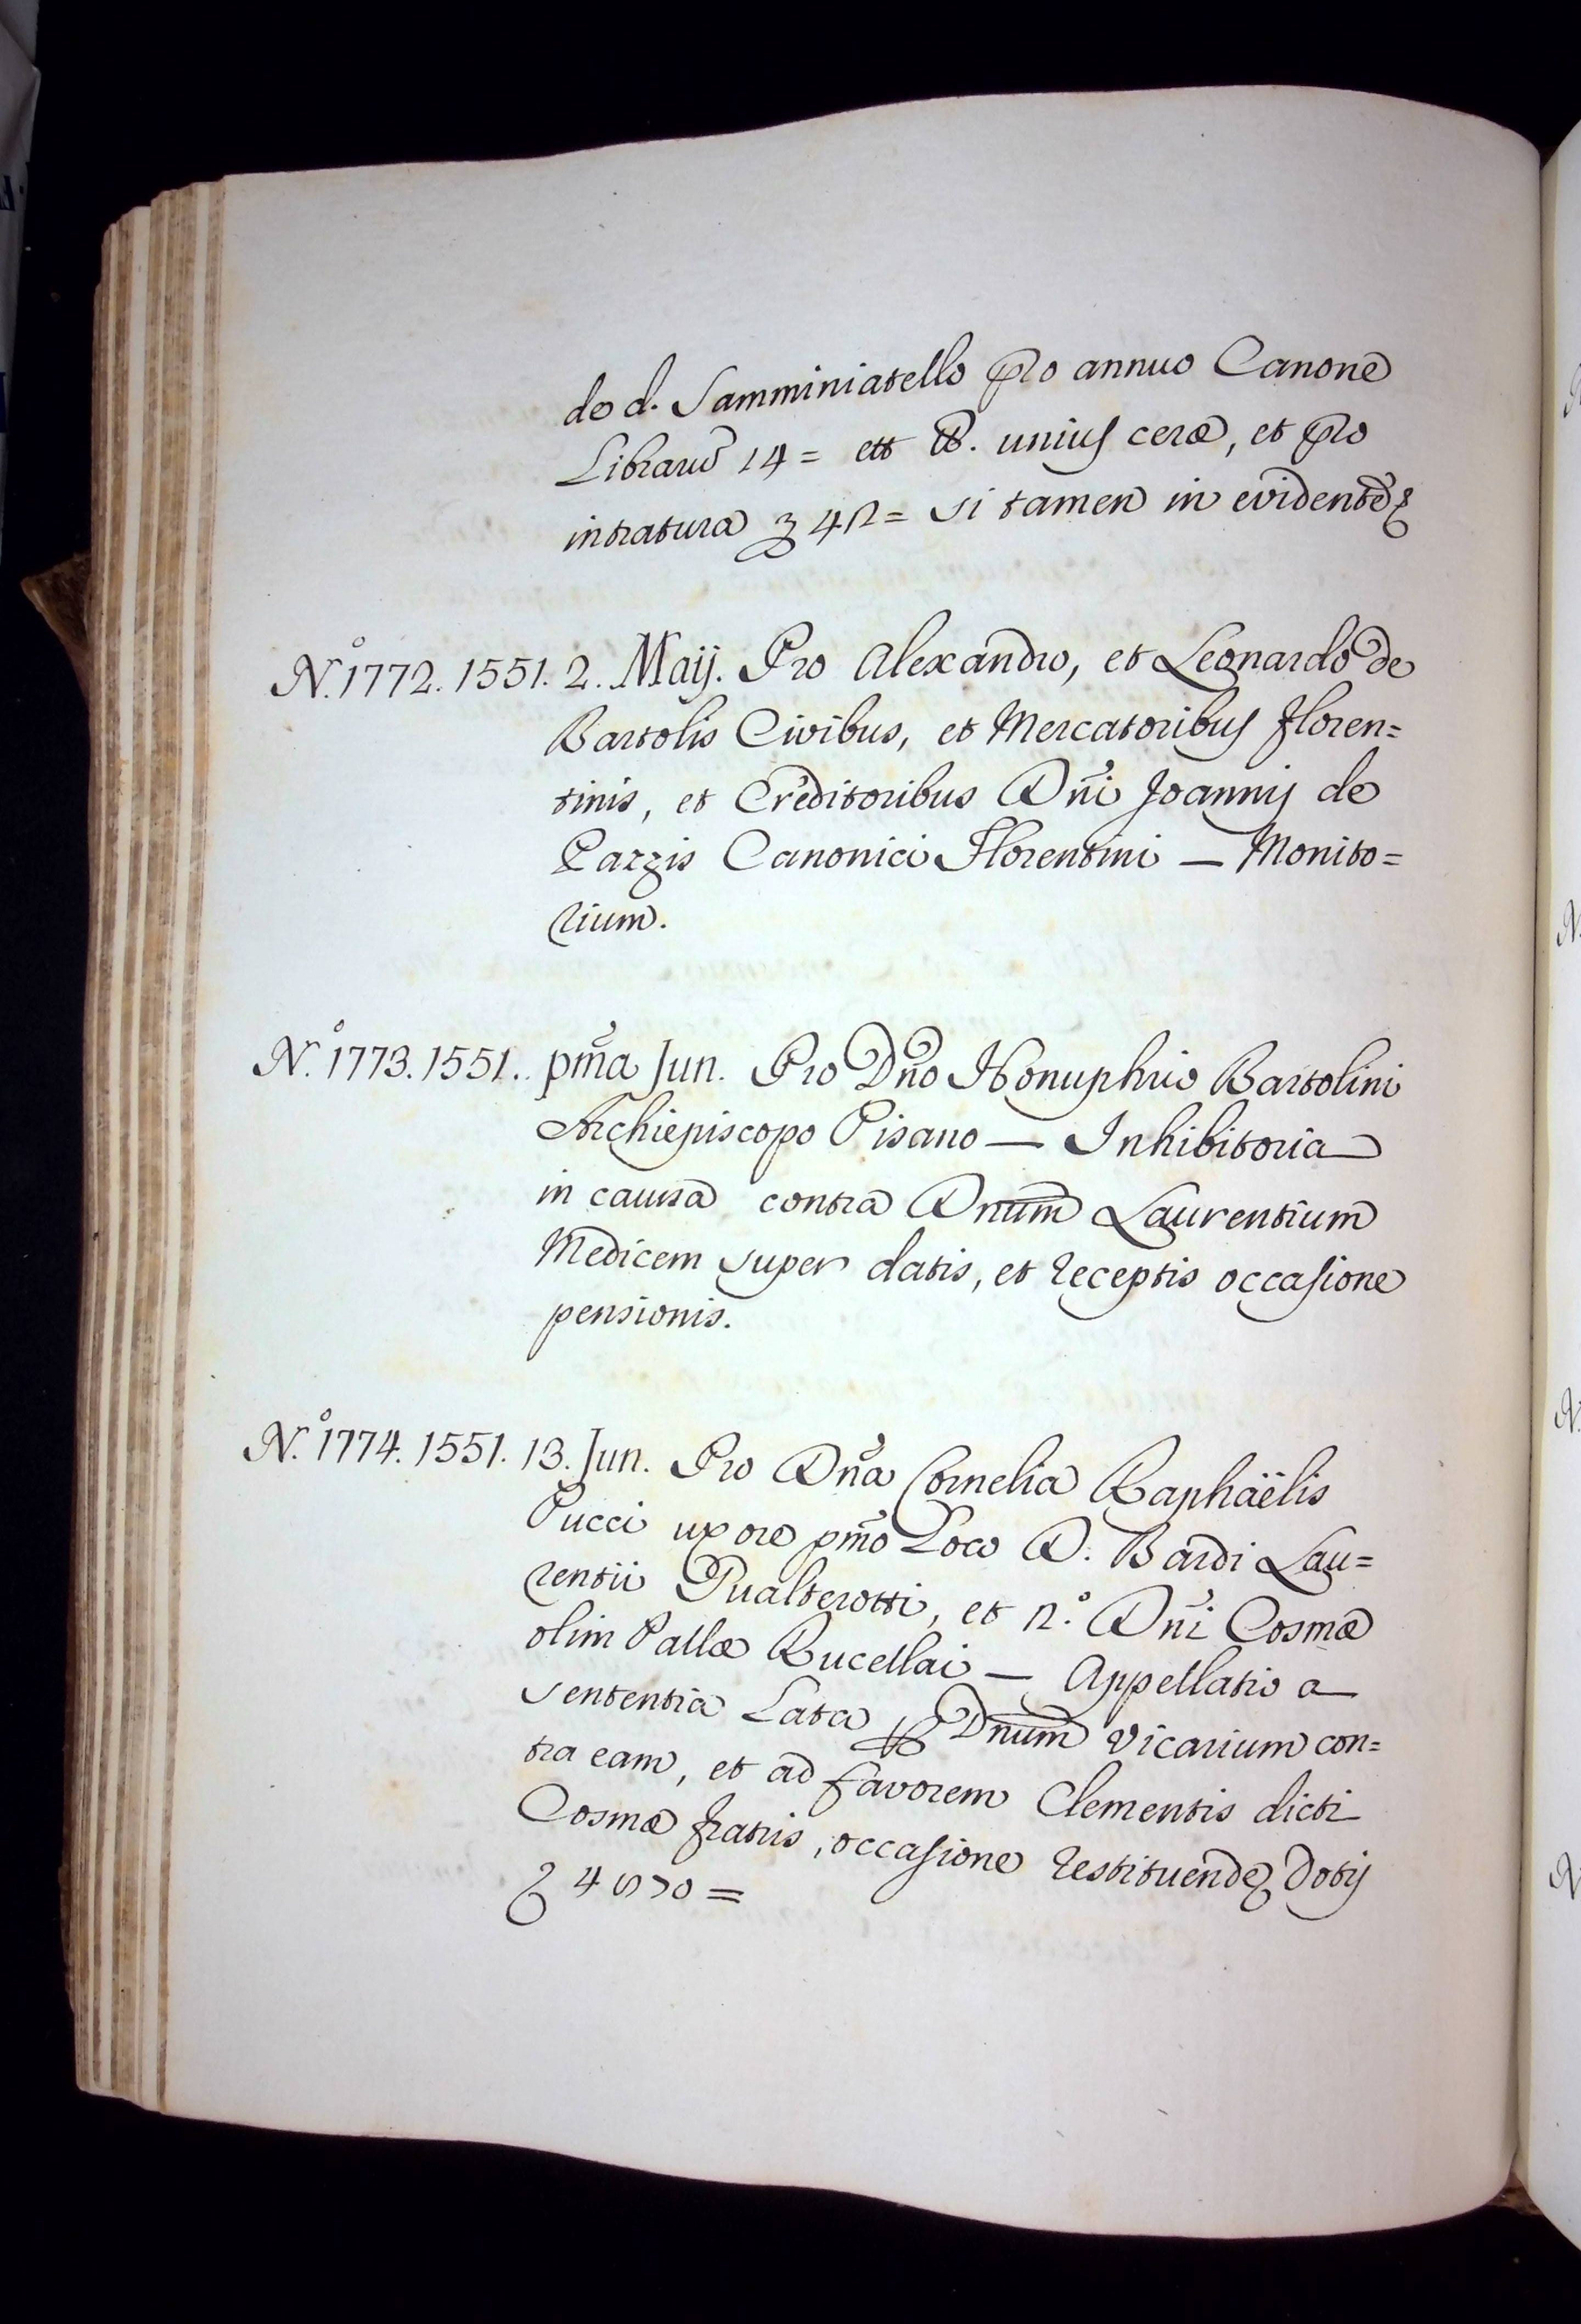 de d. Samminiatello pro annuo Canone
Librarũ 14 = et ℔. unius ceræ, et pro
intratura 42 = si tamen in evidentẽ
N.º 1772. 1551. 2. Maij. Pro Alexandro, et Leonardo de
Bartolis Civibus, et Mercatoribus Floren=
tinis, et Creditoribus Dñi Joannis de
Pazzis Canonici Florentini — Monito=
rium.
N.º 1773. 1551. pm̃a Jun. Pro Dño Honuphrio Bartolini
Archiepiscopo Pisano — Inhibitoria
in causa contra Dnum Laurentium
Medicem super datis, et receptis occasione
pensionis.
N.º 1774. 1551. 13. Jun. Pro Dña Cornelia Raphaëlis
Pucci uxore pm̃o Loco D. Bardi Lau=
rentii Gualterotti, et 2.º Dñi Cosmæ
olim Pallæ Rucellai — Appellatio a
sententia Lata Dnum Vicarium con=
tra eam, et ad favorem Clementis dicti
Cosmæ fratris, occasione restituendę Dotis